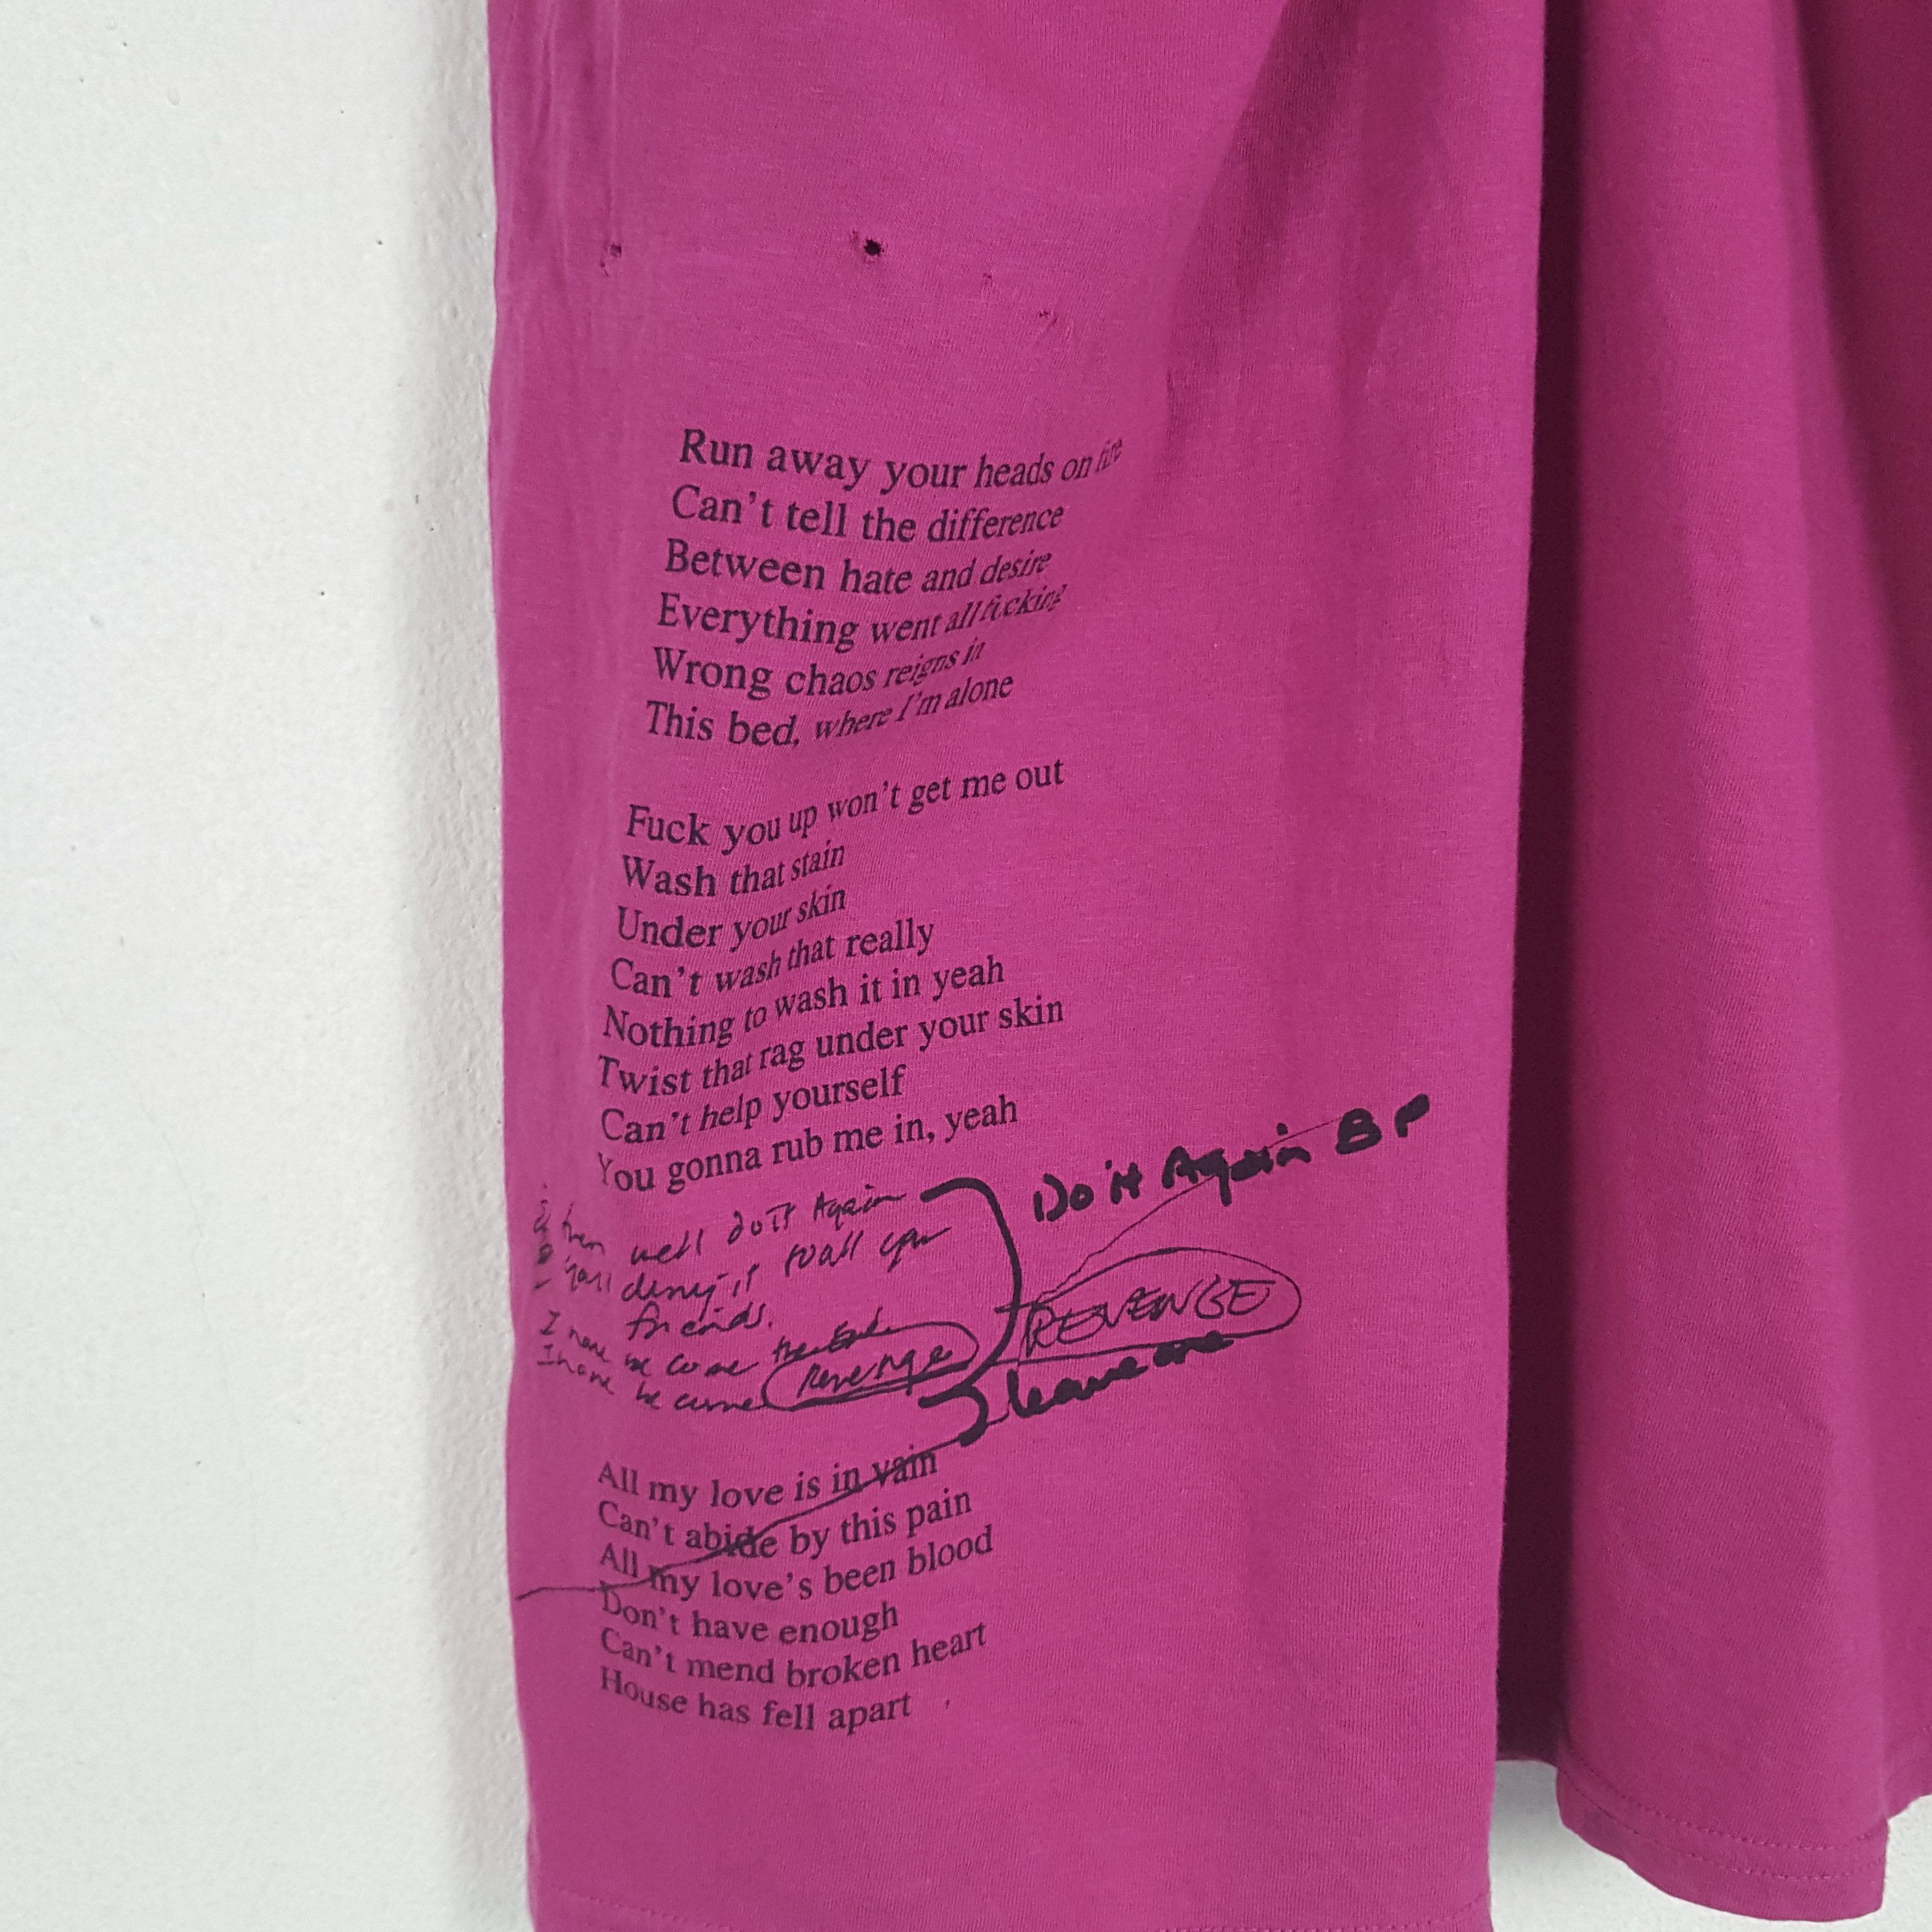 Run away your heads on fire
Can't tell the difference
Between hate and desire
Everything went all fucking
Wrong chaos reigns in
This bed, where I'm alone
Fuck you up won't get me out
Wash that stain
Under your skin
Can't wash that really
Nothing to wash it in yeah
Twist that rag under your skin
Can't help yourself
You gonna rub me in, yeah
then well do it Again
Do it Again
deny it to all your
friends.
REVENGE
I have become the
I have become Revenge
leave one
All my love is in vain
Can't abide by this pain
All my love's been blood
Don't have enough
Can't mend broken heart
House has fell apart